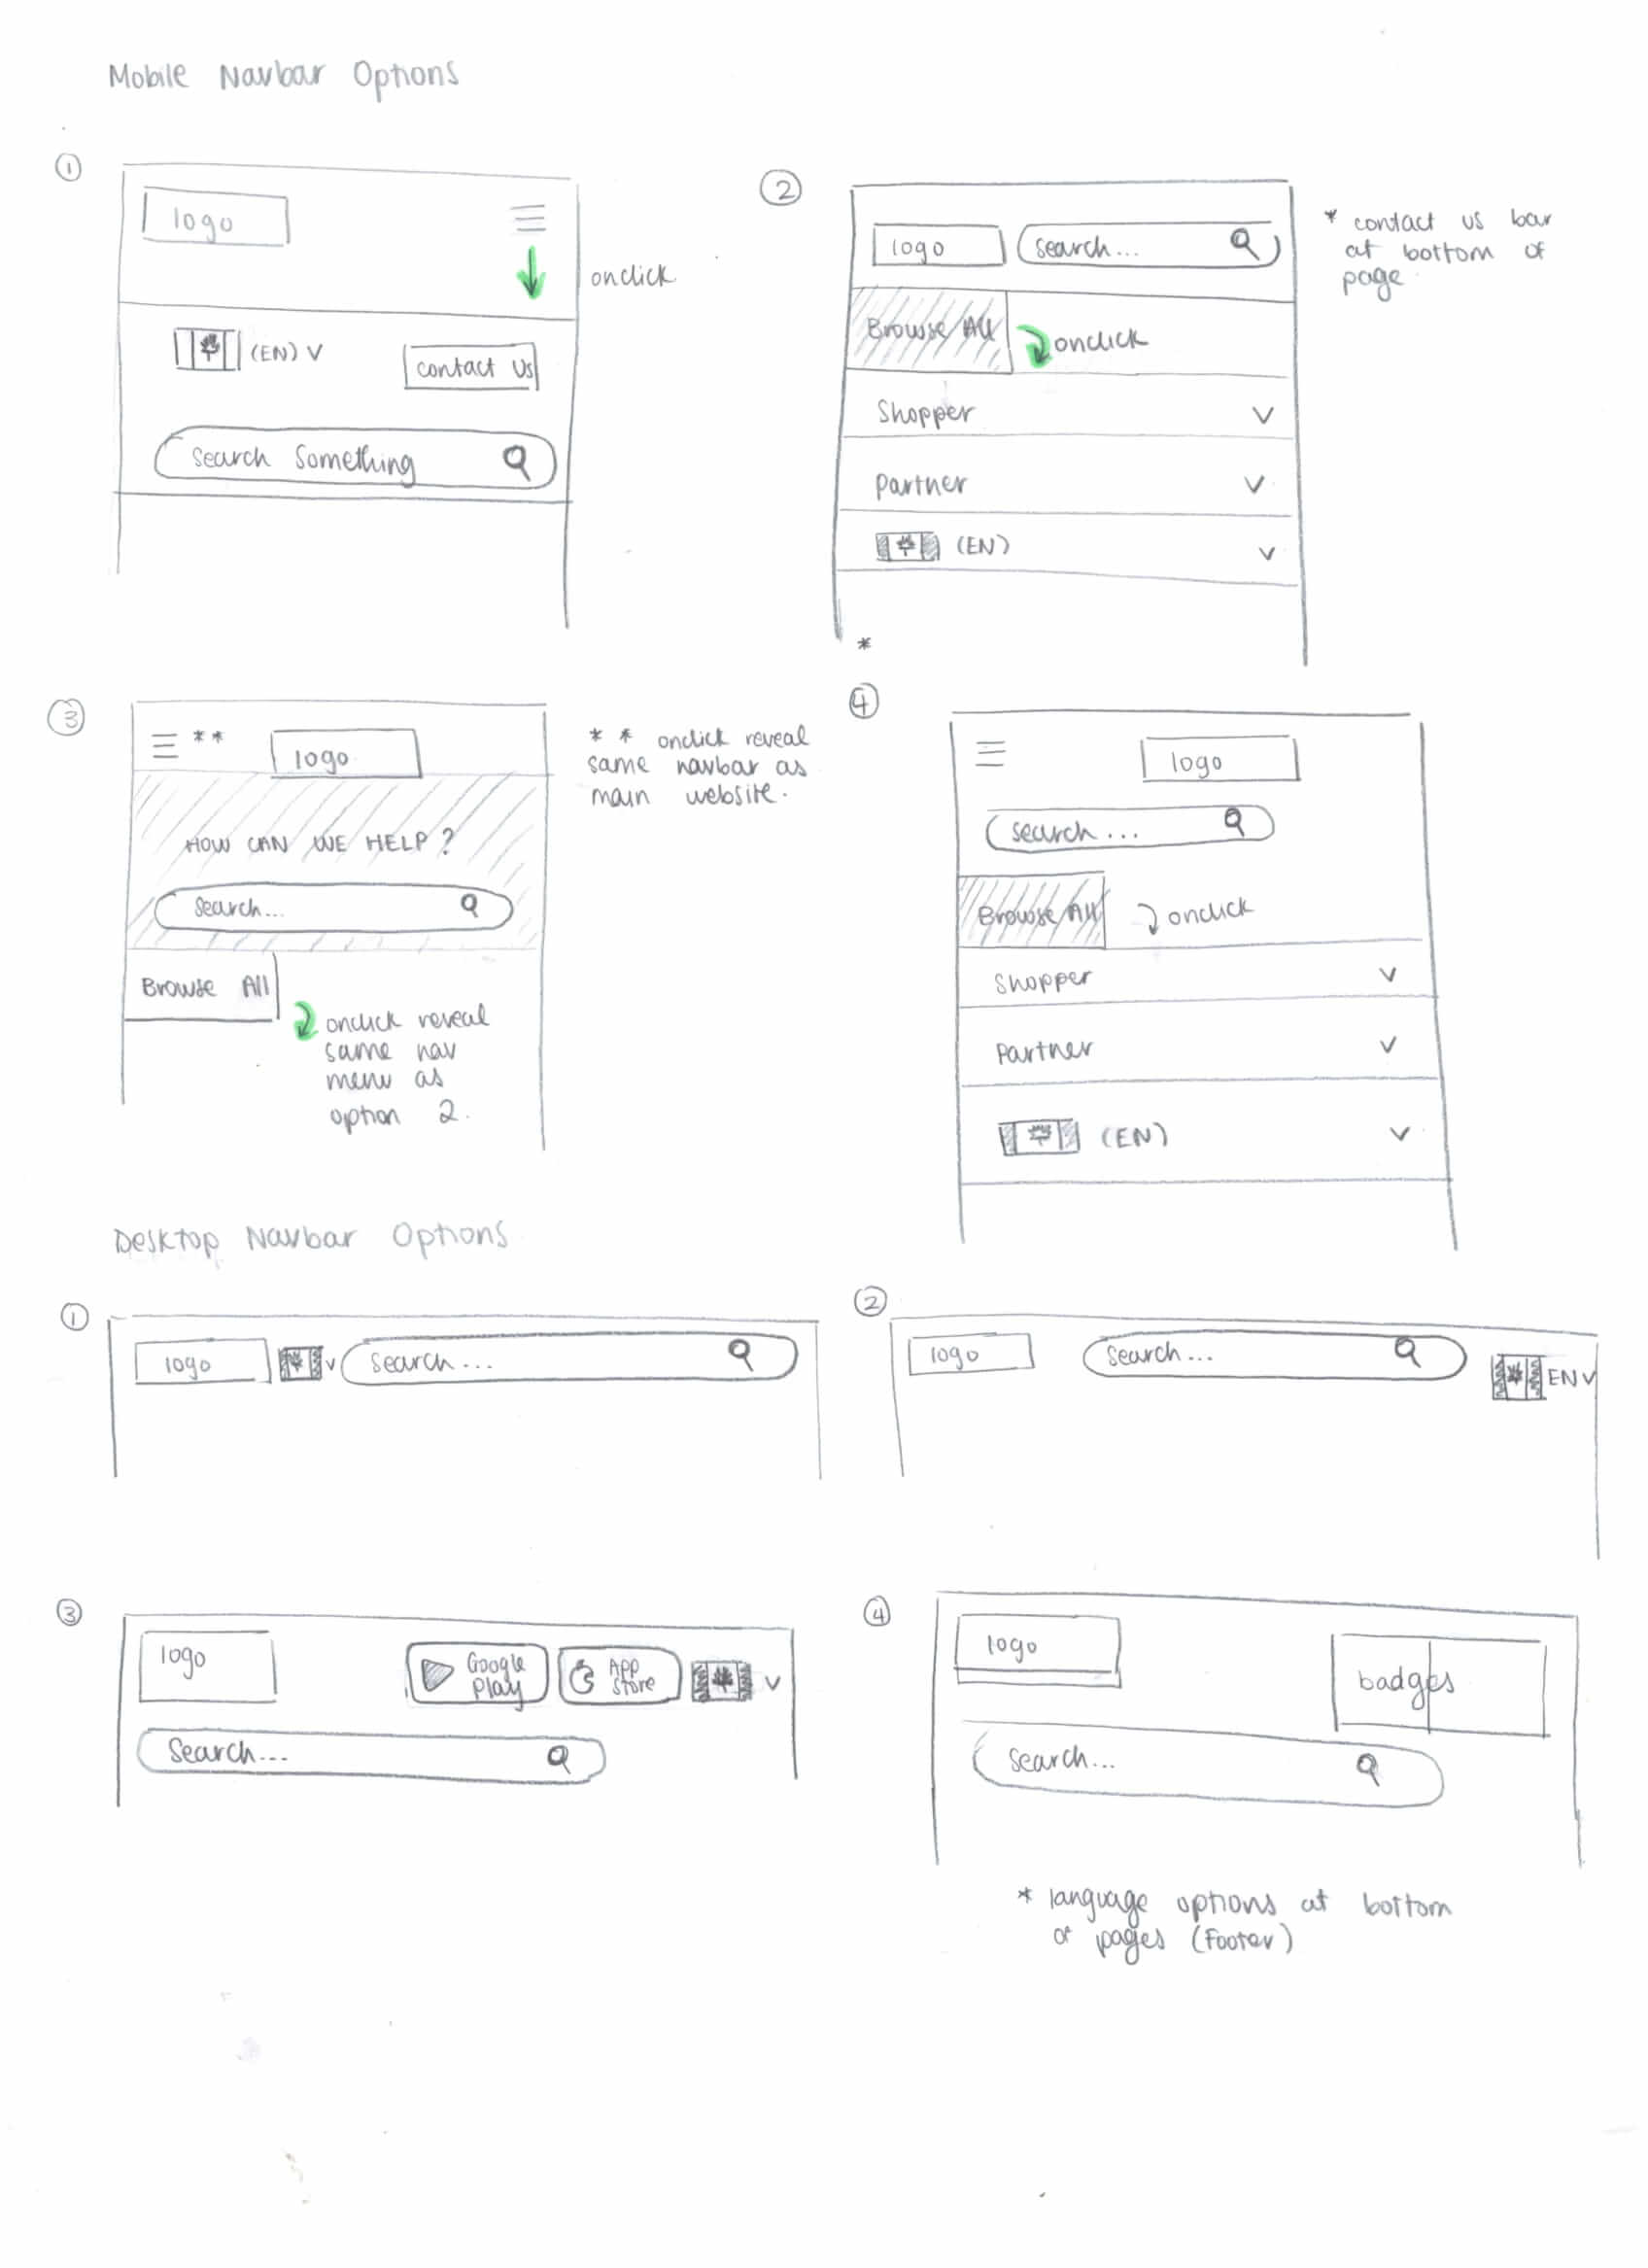 Mobile Navbar Options
1
logo
onclick
(EN)
contact Us
search something
2
logo
search...
* contact us bar
at bottom of
page
Browse All
onclick
Shopper
partner
(EN)
*
3
**
logo
HOW CAN WE HELP?
search...
Browse All
onclick reveal
same nav
menu as
option 2.
* * onclick reveal
same navbar as
main website.
4
logo
search...
Browse All
onclick
shopper
partner
(EN)
Desktop Navbar Options
1
logo
search...
2
logo
search...
EN
3
logo
Google
Play
App
Store
Search...
4
logo
badges
search...
* language options at bottom
of pages (footer)